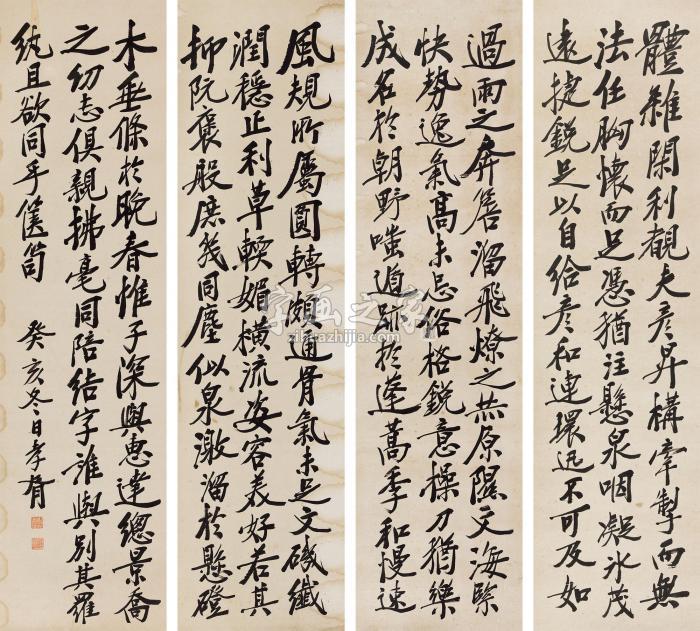 體雖閑利觀夫彥昇構牽掣而無
法任胸懷而足憑猶注懸泉咽凝冰茂
遠捷銳足以自給彥和連環迅不可及如
過雨之奔簷溜飛燎之爇原隰文海緊
快勢逸氣高未忘俗格銳意操刀猶樂
成名於朝野嗤遁跡於蓬蒿季和慢速
風規所屬圓轉頗通骨氣未足文磯纖
潤穩正利草輭媚橫流姿容美好若其
抑阮褒殷庶幾同塵似泉激溜於懸磴
木垂條於晚春惟子深與惠達總景喬
之幼志俱親拂毫同陪結字誰與別其羅
紈且欲同乎篋笥 癸亥冬日孝胥
字画之家
zihuazhijia.com